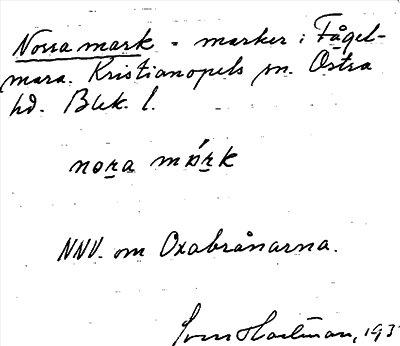 Norra mark - marker i Fågel-
mara. Kristianopels sn. Östra
hd. Blek. l.
nora mark
NNV. om Oxabrånarna.
Sven Hartman, 193